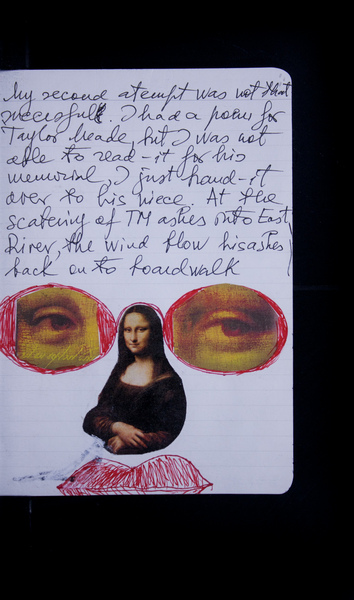 My second atempt was not that
successfull. I had a poem for
Taylor Meade, but I was not
able to read-it for his
memorial, I just hand-it
over to his niece. At the
scatering of TM ashes onto East
River, the wind flow his ashes
back on to boardwalk